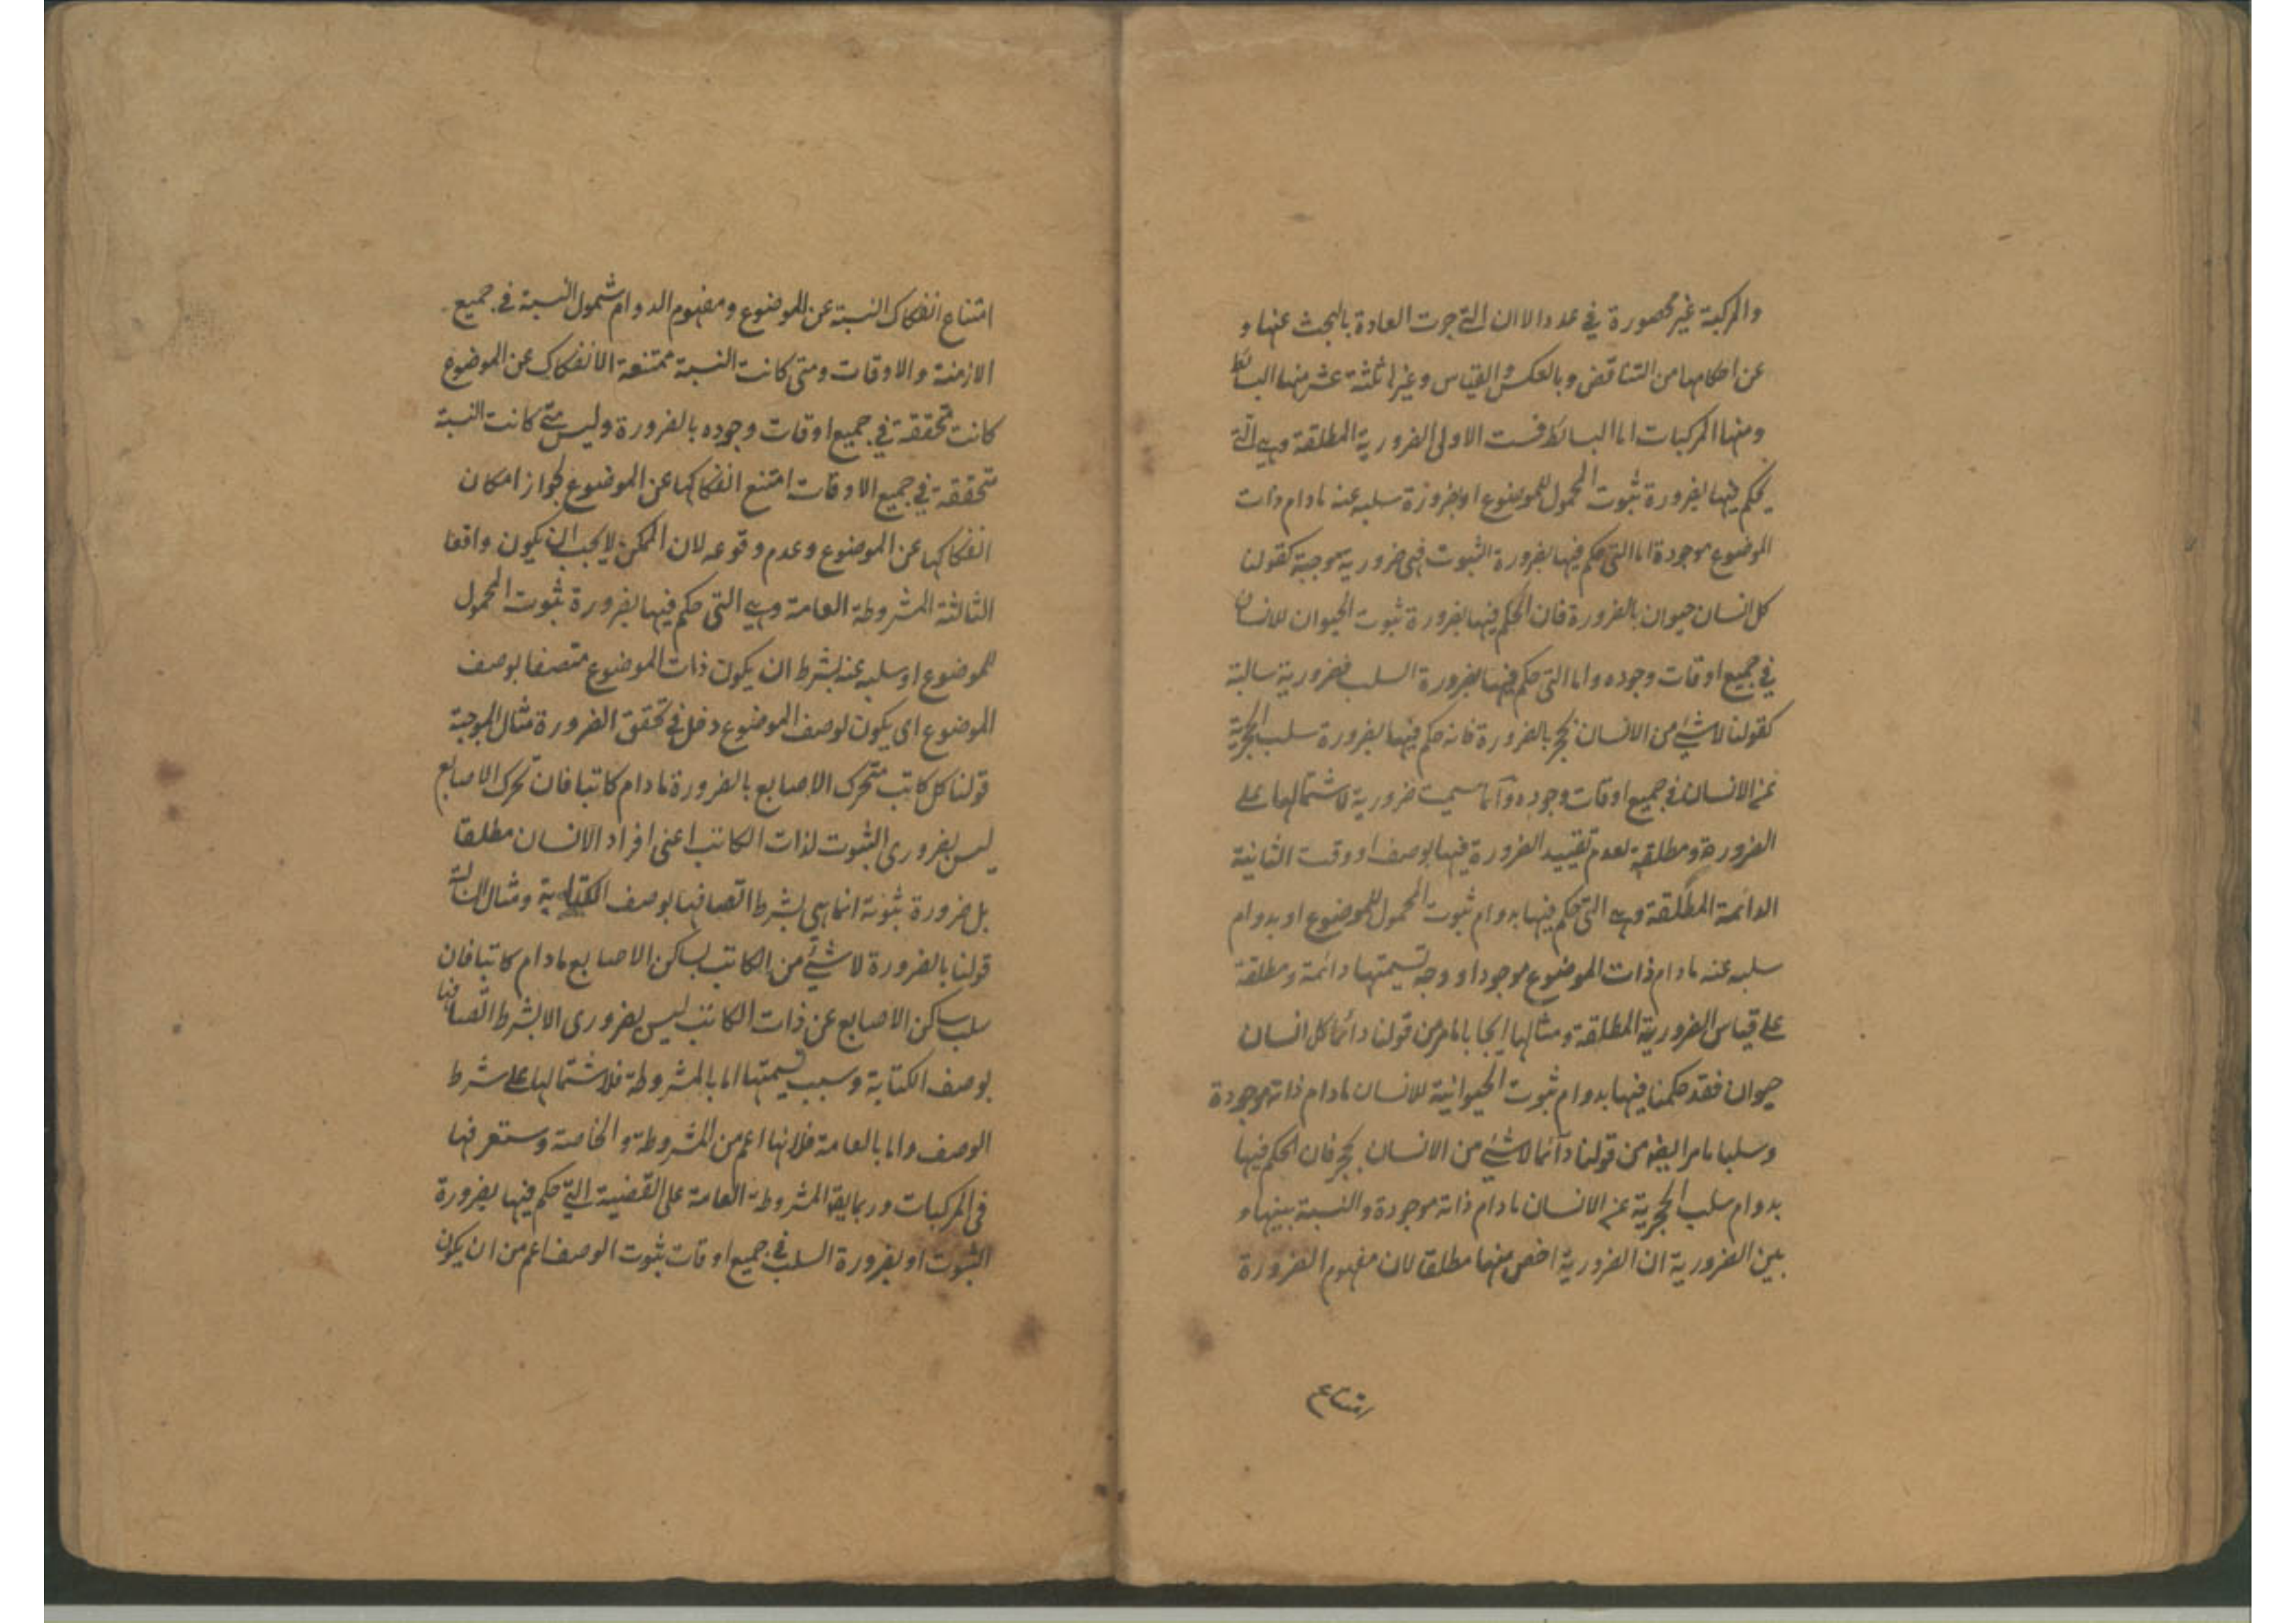 والمركبة غير محصورة في عدد الا ان التي جرت العادة بالبحث عنها و
عن احكامها من التناقض وبالعكس والقياس وغيرها ثلثة عشر منها البسائط
ومنها المركبات اما البسائط فست الاولى الضرورية المطلقة وهي التي
يحكم فيها بضرورة ثبوت المحمول للموضوع او بضرورة سلبه عنه مادام ذات
الموضوع موجودة اما التي حكم فيها بضرورة الثبوت فهي ضرورية موجبة كقولنا
كل انسان حيوان بالضرورة فان الحكم فيها بضرورة ثبوت الحيوان للانسان
في جميع اوقات وجوده واما التي حكم فيها بضرورة السلب فضرورية سالبة
كقولنا لا شئ من الانسان بحجر بالضرورة فانه حكم فيها بضرورة سلب الحجرية
عن الانسان في جميع اوقات وجوده وانما سميت ضرورية لاشتمالها على
الضرورة ومطلقة لعدم تقييد الضرورة فيها بوصف او وقت الثانية
الدائمة المطلقة وهي التي حكم فيها بدوام ثبوت المحمول للموضوع او بدوام
سلبه عنه مادام ذات الموضوع موجودا ووجه تسميتها دائمة ومطلقة
على قياس الضرورية المطلقة ومثالها ايجابا مامر من قولنا دائما كل انسان
حيوان فقد حكمنا فيها بدوام ثبوت الحيوانية للانسان مادام ذاته موجودة
وسلبا مامر ايضه من قولنا دآئما لا شئ من الانسان بحجر فان الحكم فيها
بدوام سلب الحجرية عن الانسان مادام ذاته موجودة والنسبة بينها و
بين الضرورية ان الضرورية اخص منها مطلقا لان مفهوم الضرورة
امتناع
امتناع انفكاك النسبة عن الموضوع ومفهوم الدوام شمول النسبة في جميع
الازمنة والاوقات ومتى كانت النسبة ممتنعة الانفكاك عن الموضوع
كانت متحققة في جميع اوقات وجوده بالضرورة وليس متى كانت النسبة
متحققة في جميع الاوقات امتنع انفكاكها عن الموضوع لجواز امكان
انفكاكها عن الموضوع وعدم وقوعه لان الممكن لا يجب ان يكون واقعا
الثالثة المشروطة العامة وهي التي حكم فيها بضرورة ثبوت المحمول
للموضوع او سلبه عنه بشرط ان يكون ذات الموضوع متصفا بوصف
الموضوع اى يكون لوصف الموضوع دخل في تحقق الضرورة مثال الموجبة
قولنا كل كاتب متحرك الاصابع بالضرورة مادام كاتبا فان تحرك الاصابع
ليس بضرورى الثبوت لذات الكاتب اعنى افراد الانسان مطلقا
بل ضرورة ثبوته انما هي بشرط اتصافها بوصف الكتابة ومثال السالبة
قولنا بالضرورة لا شئ من الكاتب بساكن الاصابع مادام كاتبا فان
سلب ساكن الاصابع عن ذات الكاتب ليس بضرورى الا بشرط اتصافها
بوصف الكتابة وسبب تسميتها اما بالمشروطة فلاشتمالها على شرط
الوصف واما بالعامة فلانها اعم من المشروطة والخاصة وستعرفها
في المركبات وربما يقه المشروطة العامة على القضية التي حكم فيها بضرورة
الثبوت او بضرورة السلب في جميع اوقات ثبوت الوصف اعم من ان يكون